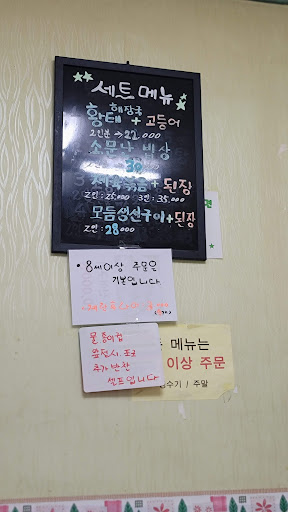 세트 메뉴
해장국
황태 + 고등어
2인분 → 22,000
소문난 밥상
제육볶음 + 된장
2인: 25,000 3인: 35,000
모듬생선구이 + 된장
2인: 28,000
• 8세이상 주문은
기본입니다
물, 종이컵
앞접시,
추가반찬
셀프입니다
메뉴는
이상 주문
/ 주말